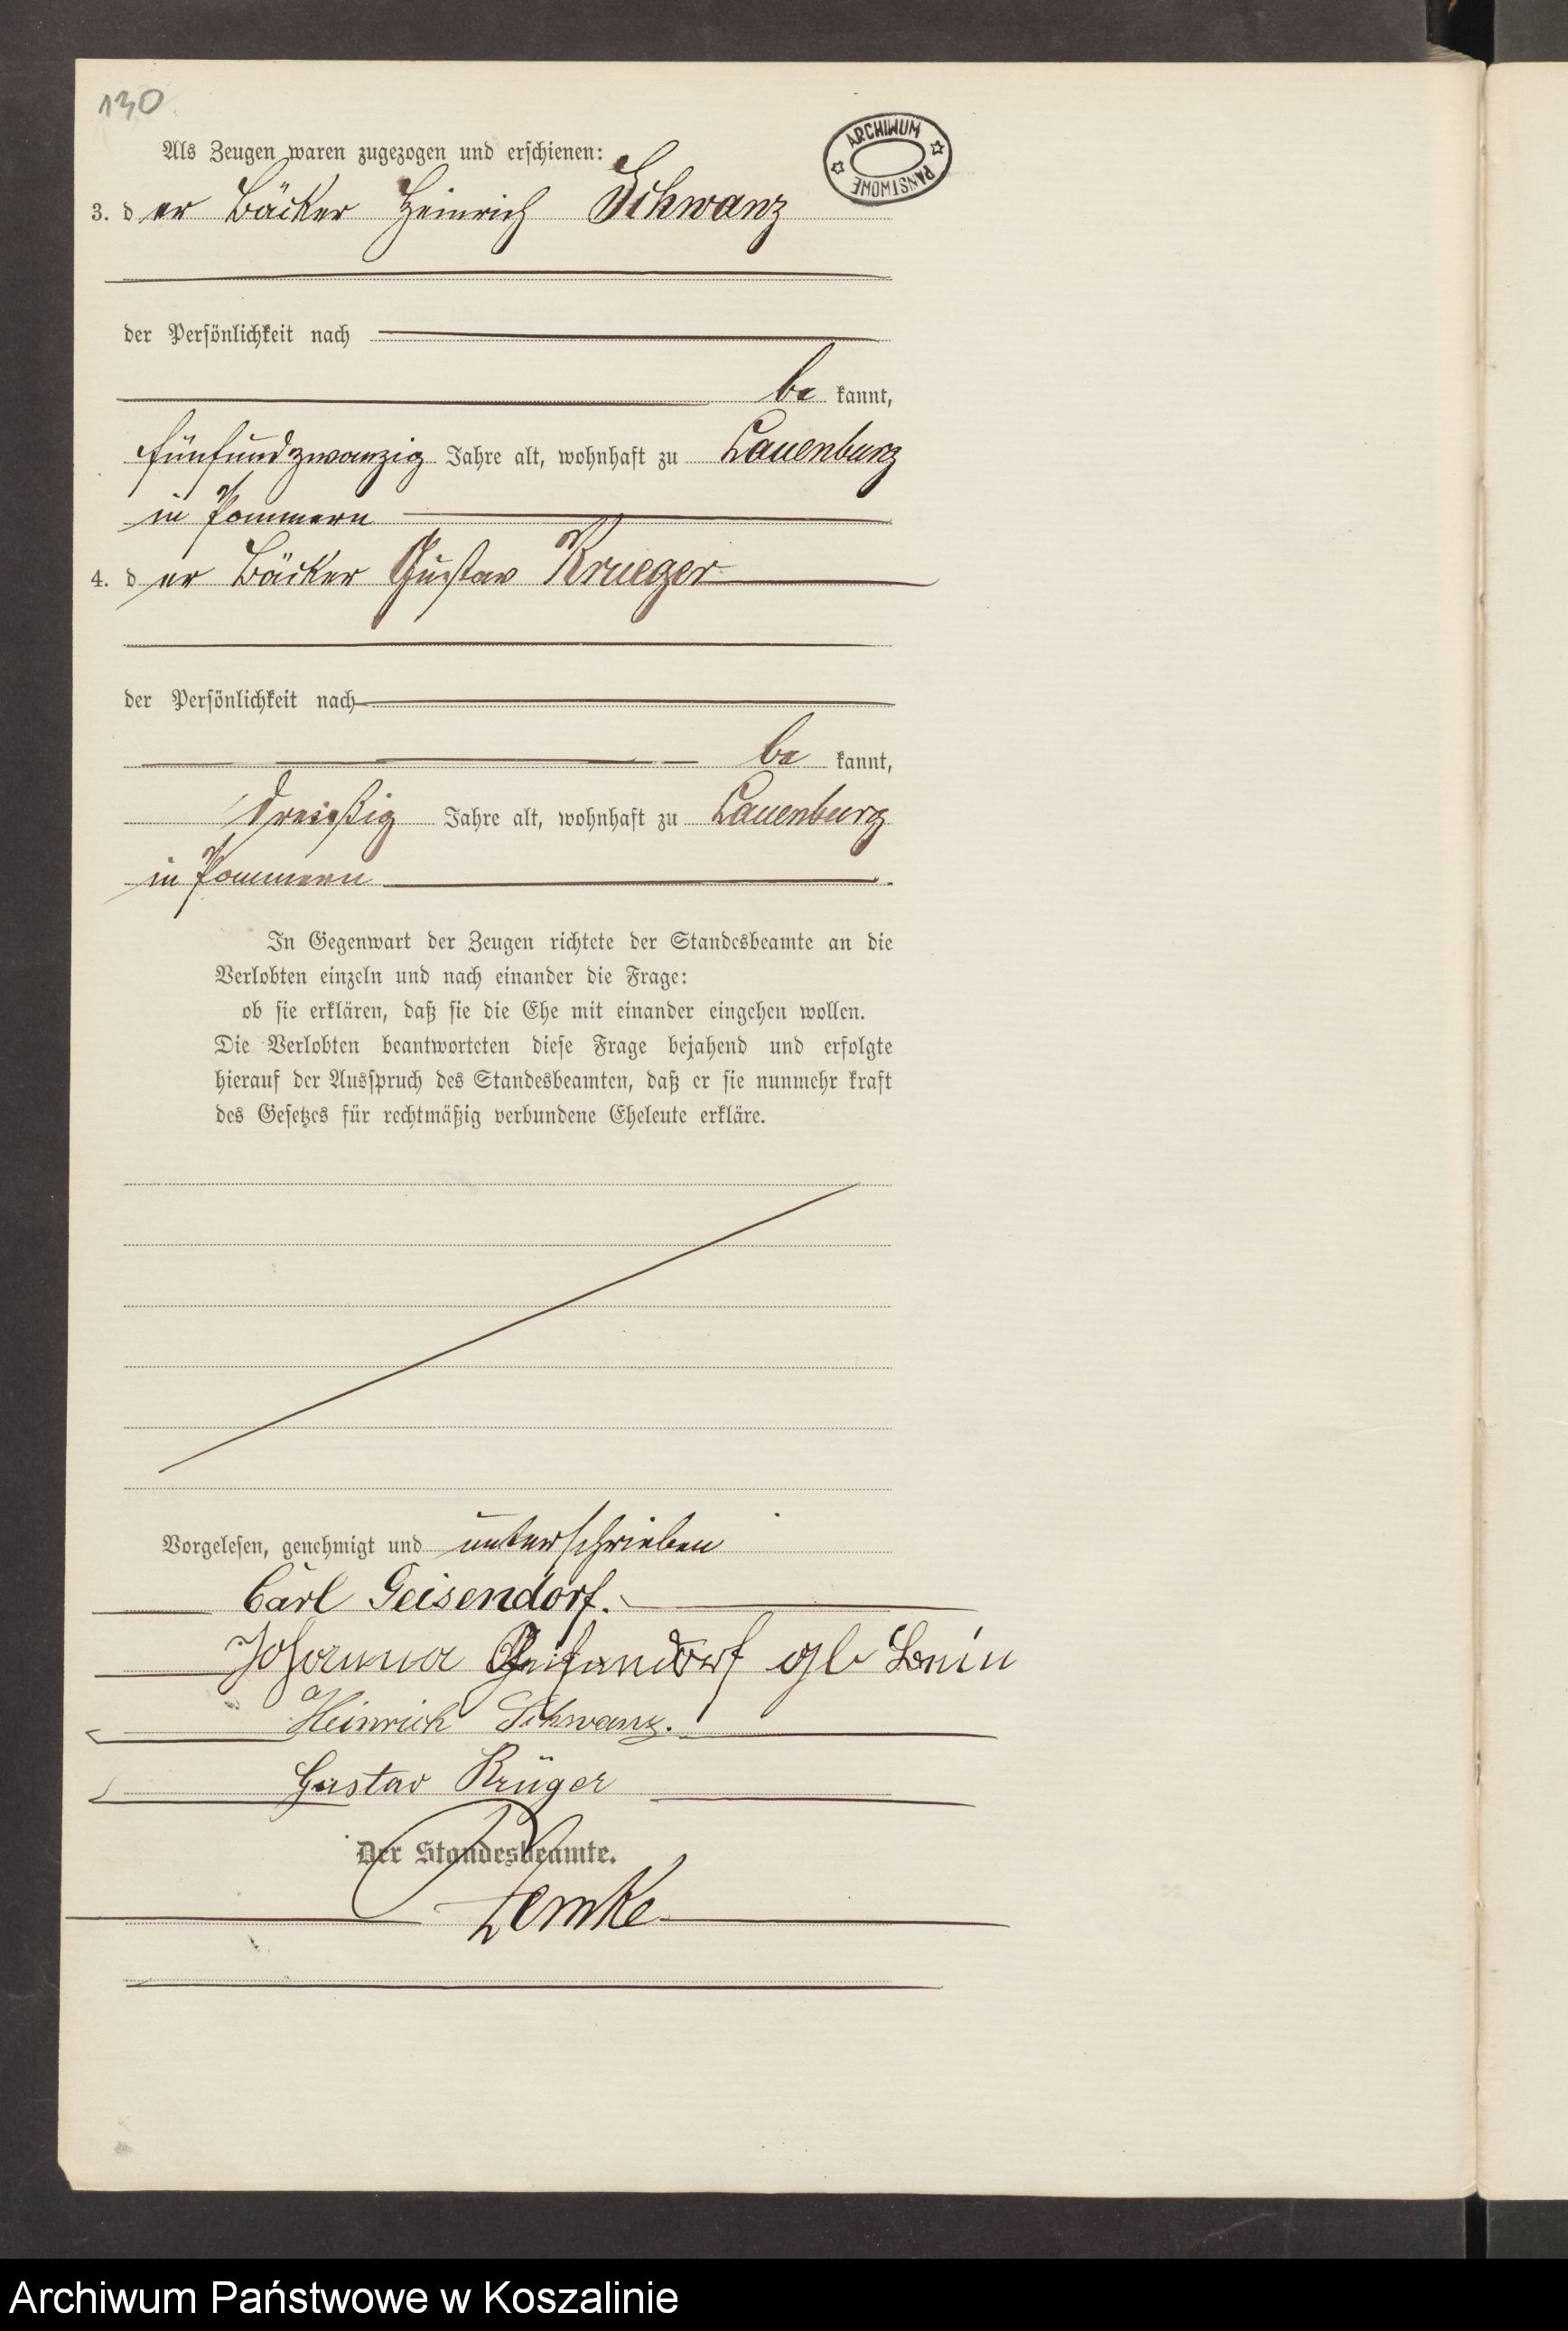 130
Als Zeugen waren zugezogen und erschienen:
ARCHIWUM
PAŃSTWOWE
3. der Bäcker Heinrich Schwanz
der Persönlichkeit nach
be kannt,
fünfundzwanzig Jahre alt, wohnhaft zu Lauenburg
in Pommern
4. der Bäcker Gustav Krueger
der Persönlichkeit nach
be kannt,
dreißig Jahre alt, wohnhaft zu Lauenburg
in Pommern
In Gegenwart der Zeugen richtete der Standesbeamte an die
Verlobten einzeln und nach einander die Frage:
ob sie erklären, daß sie die Ehe mit einander eingehen wollen.
Die Verlobten beantworteten diese Frage bejahend und erfolgte
hierauf der Ausspruch des Standesbeamten, daß er sie nunmehr kraft
des Gesetzes für rechtmäßig verbundene Eheleute erkläre.
Vorgelesen, genehmigt und unterschrieben
Carl Geisendorf.
Johanna Geisendorf gb
Heinrich Schwanz.
Gustav Krüger
Der Standesbeamte.
Lemke
Archiwum Państwowe w Koszalinie